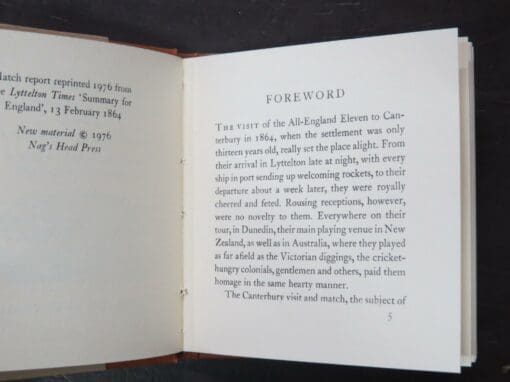 Match report reprinted 1976 from
Lyttelton Times 'Summary for
England', 13 February 1864
New material © 1976
Nag's Head Press
FOREWORD
THE VISIT of the All-England Eleven to Can-
terbury in 1864, when the settlement was only
thirteen years old, really set the place alight. From
their arrival in Lyttelton late at night, with every
ship in port sending up welcoming rockets, to their
departure about a week later, they were royally
cheered and feted. Rousing receptions, however,
were no novelty to them. Everywhere on their
tour, in Dunedin, their main playing venue in New
Zealand, as well as in Australia, where they played
as far afield as the Victorian diggings, the cricket-
hungry colonials, gentlemen and others, paid them
homage in the same hearty manner.
The Canterbury visit and match, the subject of
5